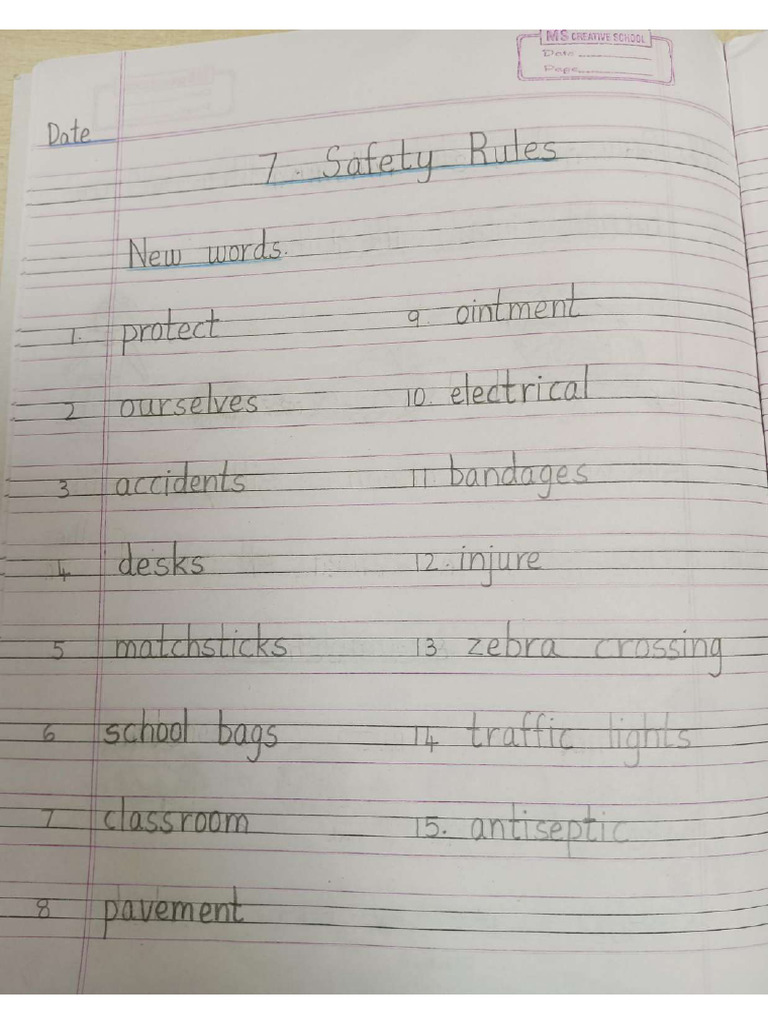 MS CREATIVE SCHOOL
Date
Page
Date
7. Safety Rules
New words.
1. protect
2 ourselves
3 accidents
4 desks
5 matchsticks
6 school bags
7 classroom
8 pavement
9. ointment
10. electrical
11. bandages
12. injure
13 zebra crossing
14 traffic lights
15. antiseptic